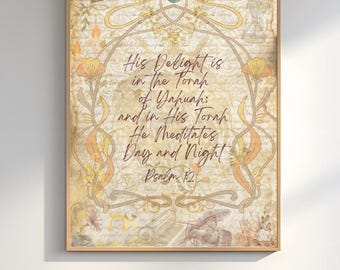 His Delight is
in the Torah
of Yahuah;
and in His Torah
He Meditates
Day and Night
Psalm 1:2